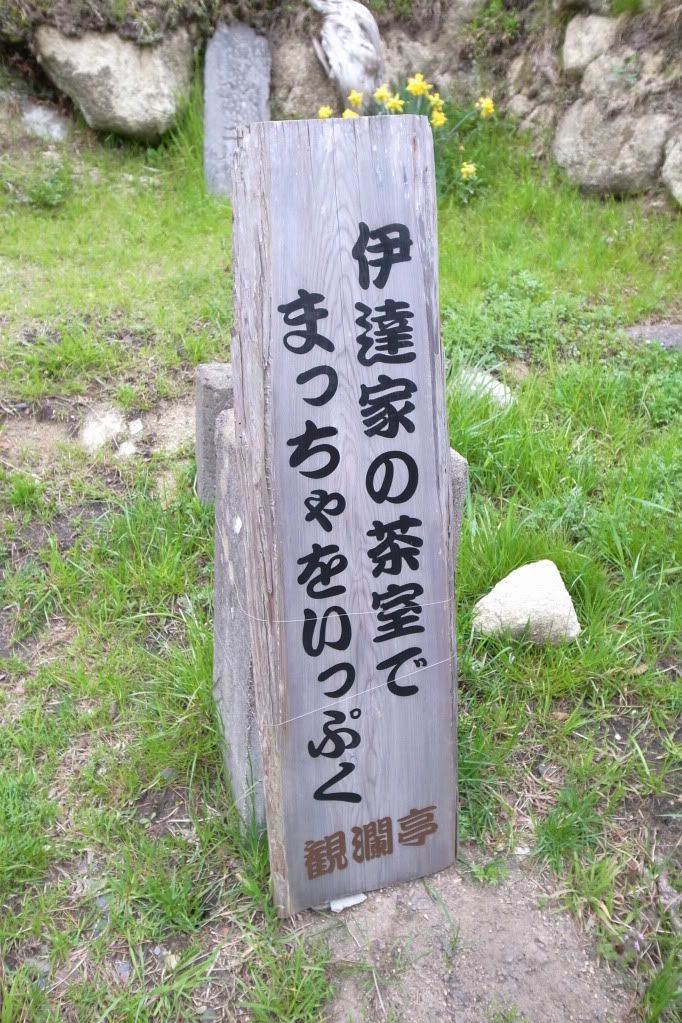 伊達家の茶室で
まっちゃをいっぷく
観瀾亭